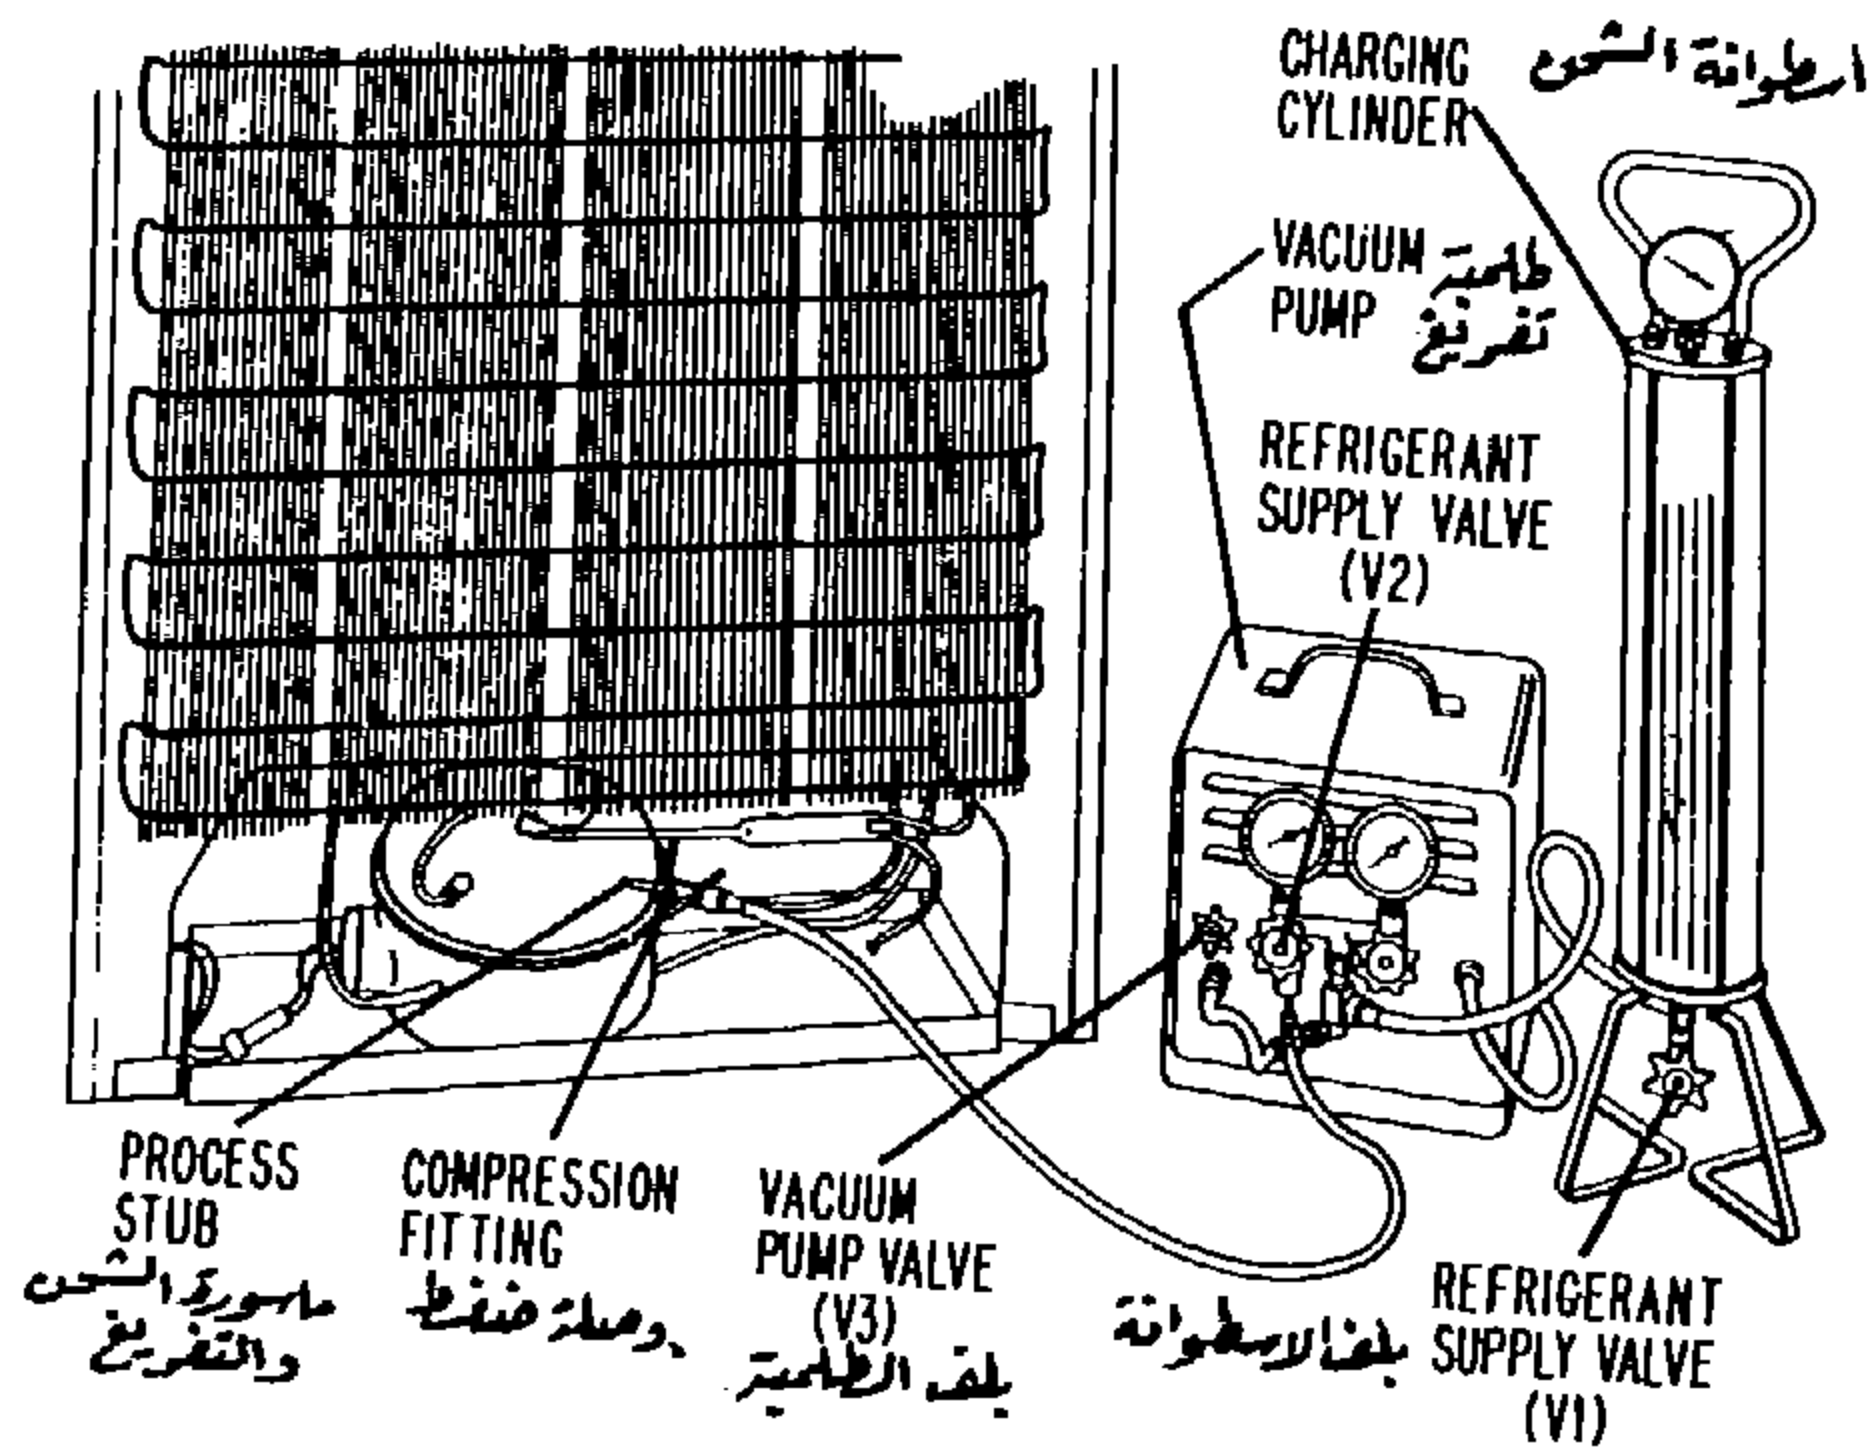 CHARGING
CYLINDER
ارطوانة الشحن
VACUUM
PUMP
طلمبة
تفريغ
REFRIGERANT
SUPPLY VALVE
(V2)
PROCESS
STUB
ماسورة الشحن
والتفريغ
COMPRESSION
FITTING
وصلة ضغط
VACUUM
PUMP VALVE
(V3)
بلف الطلمبة
بلف الاسطوانة
REFRIGERANT
SUPPLY VALVE
(V1)